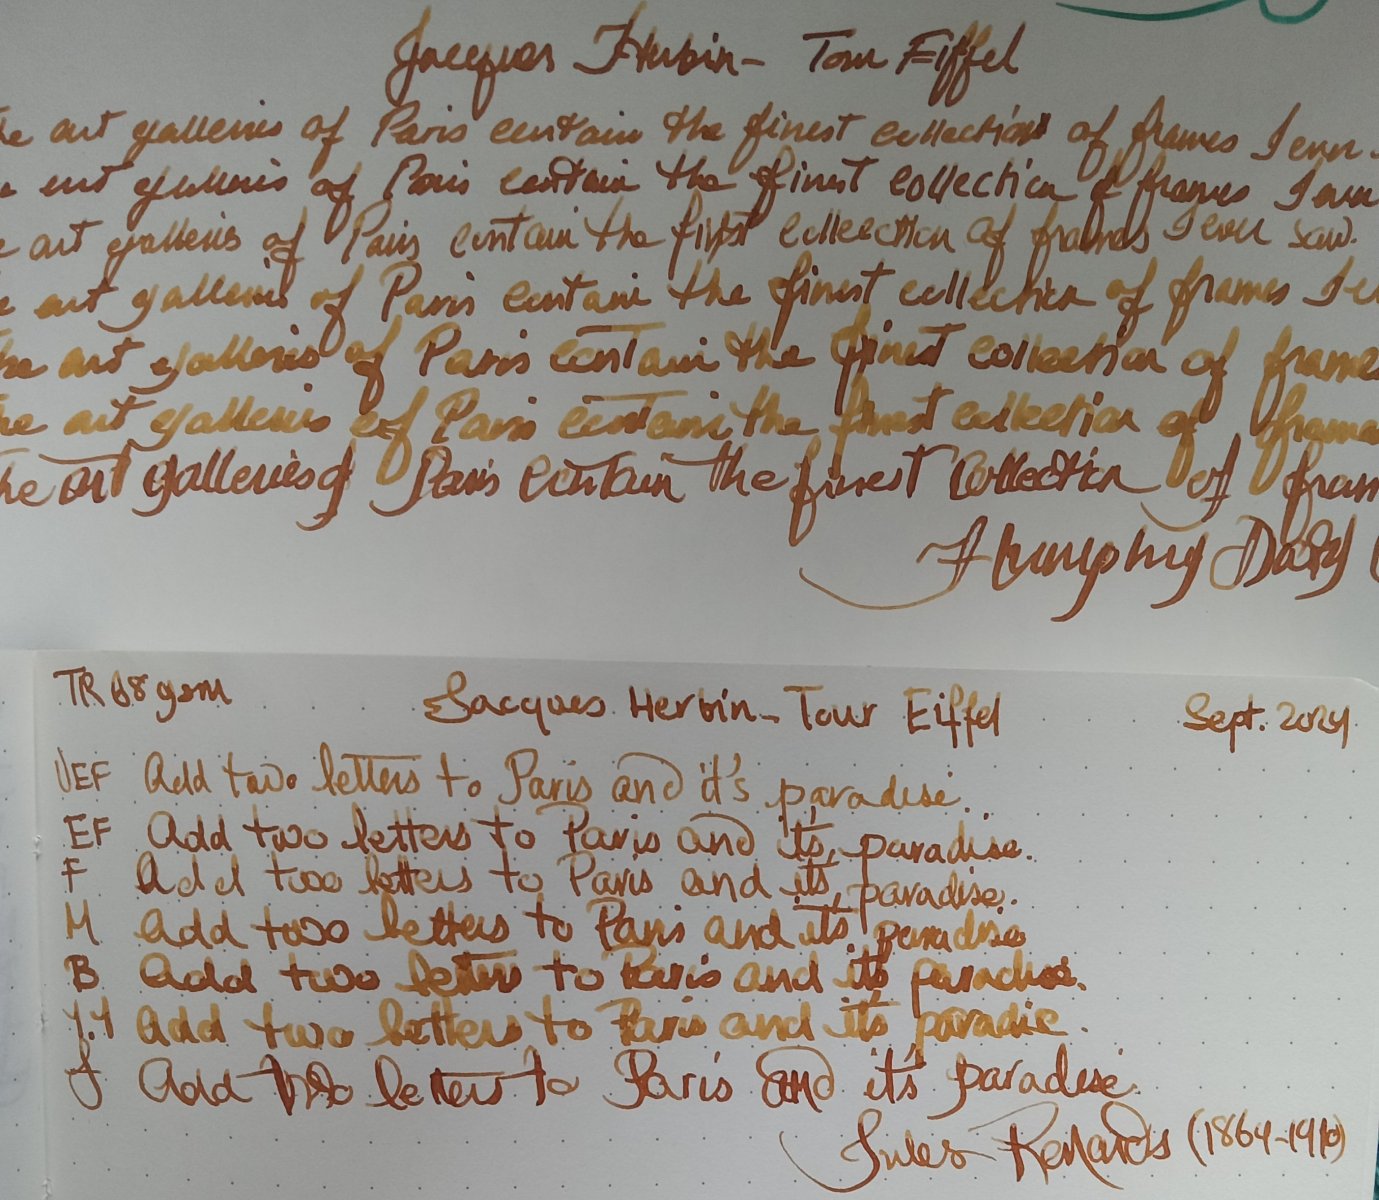 Jacques Herbin - Tour Eiffel
he art galleries of Paris contain the finest collection of frames I ever
e art galleries of Paris contain the finest collection of frames I ever
e art galleries of Paris contain the finest collection of frames I ever saw.
e art galleries of Paris contain the finest collection of frames I ev
he art galleries of Paris contain the finest collection of frames
he art galleries of Paris contain the finest collection of frame
he art galleries of Paris contain the finest collection of fram
Humphry Davy (
TR 68 gsm Jacques Herbin - Tour Eiffel Sept. 2024
UEF Add two letters to Paris and it's paradise.
EF Add two letters to Paris and it's paradise.
F Add two letters to Paris and it's paradise.
M Add two letters to Paris and it's paradise
B Add two letters to Paris and it's paradise.
1.1 Add two letters to Paris and it's paradise.
J Add two letters to Paris and it's paradise.
Jules Renards (1864-1910)